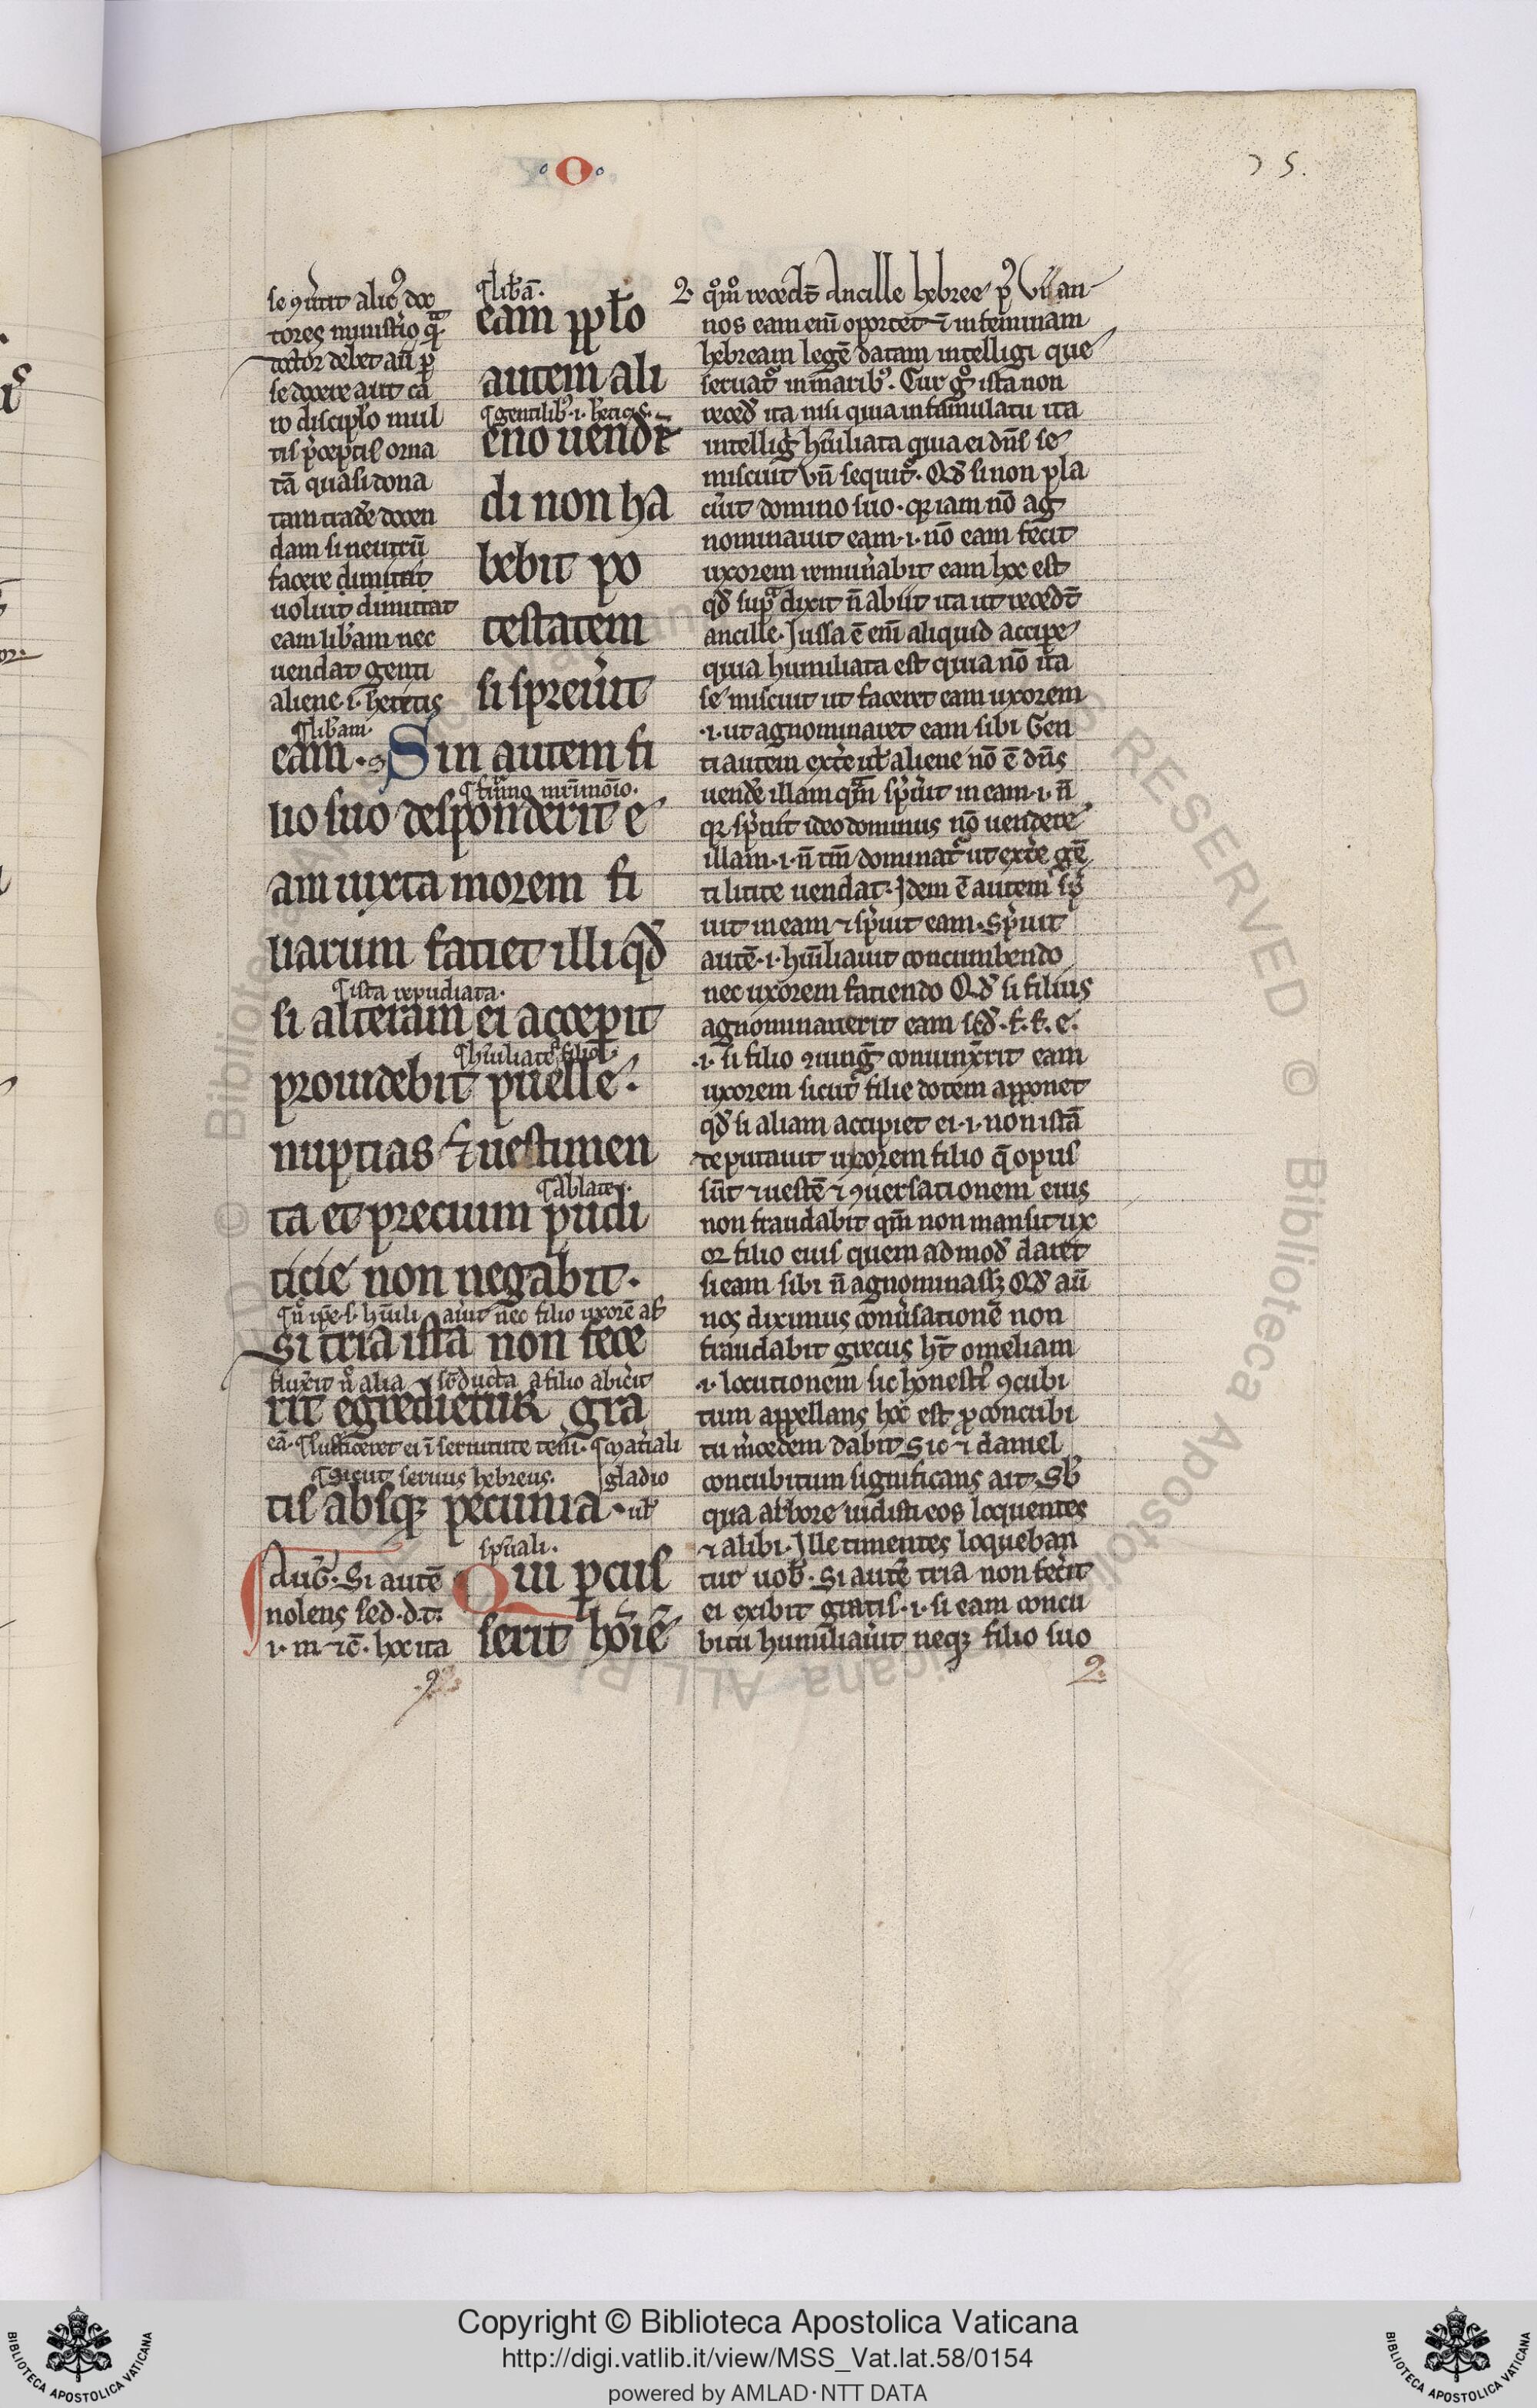 O
75.
se ꝯuertit alicꝰ doc
tores ministerio qͣ
doctor debet aut ꝑ
se docere aut ca
ro discipulo mul
tis preceptis orna
tā quasi dona
tam tradere docen
dam si neutrū
facere dimittit
uoluit dimittat
eam liberam nec
uendat genti
aliene .i. hereticis
liberā.
eam ppło
autem ali
gentilibꝰ .i. hereticis.
eno uendē
di non ha
bebit po
testatem
si spreu̾it
liberam.
eam. Sin autem fi
firmo matrimonio.
lio suo desponderit e
am iuxta morem fi
liarum faciet illi qđ
ista repudiata.
si alteram ei acceꝑit
humiliate a filio
prouidebit puelle.
nuptias ⁊ uestimen
ablate.
ta et precium pudi
ticie non negabit.
Si tria ista non fece
rit egredietur gra
eā. sufficeret ei
materiali
Sicut seruus hebreus.
gladio
tis absqꝫ pecunia. ul̾
spirituali.
Aug̾. Si autē
nolens sed .d.t.
i. m ⁊c̄. hoc ita
Qui ꝑcus
serit hoīē
2. qōmō recedūt Ancille hebree
nos eam enī oportet ī feminam
hebream legē datam intelligi que
seruat̾ in maribꝰ. Cur gͦ ista non
reced̾ ita nisi quia in famulatu ita
intellig̾ hūiliata quia ei dn̄s se
miscuit vn̄ sequit̾. Qđ si non pla
cu̾it domino suo. qꝫ iam nō ag
nominauit eam .i. nō eam fecit
uxorem remun̾abit eam hoc est
qđ supͣ dixit n̄ abiit ita ut recedūt
ancille. Iussa ē enī aliquid accipe
quia humiliata est quia nō ita
se miscuit ut faceret eam uxorem
.i. ut agnominaret eam sibi Gen
ti autem ext̾e ul̾ aliene nō ē dn̄s
uende illam qm̄ sp̾uit in eam .i. n̄
qꝫ sp̾uit ideo dominus nō uendere
illam .i. n̄ tm̄ dominat̾ ut ext̾e gē
ti licite uendat. Idem ē autem sp̾
uit in eam ⁊ sp̾uit eam. Sp̾uit
autē .i. hūiliauit concumbendo
nec uxorem faciendo Qđ si filius
agnominauerit eam sed̾ .f. f. e.
.i. si filio ꝯiung̾ coniunx̾it eam
uxorem sicut filie dotem apponet
qđ si aliam accipiet ei .i. non istā
deputauit uxorem filio q̄ opus
sūt ⁊ uestē ⁊ ꝯuersationem eius
non fraudabit qm̄ non mansit ux
or filio eius quem ad mod̾ daret
si eam sibi n̄ agnominassꝫ Qđ aū
nos diximus conu̾sationē non
fraudabit grecus ht̄ omeliam
.i. locutionem sic honeste ꝯcubi
tum appellans hoc est ꝓ concubi
tu m̾cedem dabit Sic ⁊ daniel
concubitum significans ait. Sb̾
qua arbore uidisti eos loquentes
⁊ alibi. Ille timentes loqueban
tur uob̾. Si autē tria non fec̾it
ei exibit gratis .i. si eam concu
bitu humiliau̾it neqꝫ filio suo
2.
Copyright © Biblioteca Apostolica Vaticana
http://digi.vatlib.it/view/MSS_Vat.lat.58/0154
powered by AMLAD·NTT DATA
BIBLIOTECA APOSTOLICA VATICANA
BIBLIOTECA APOSTOLICA VATICANA